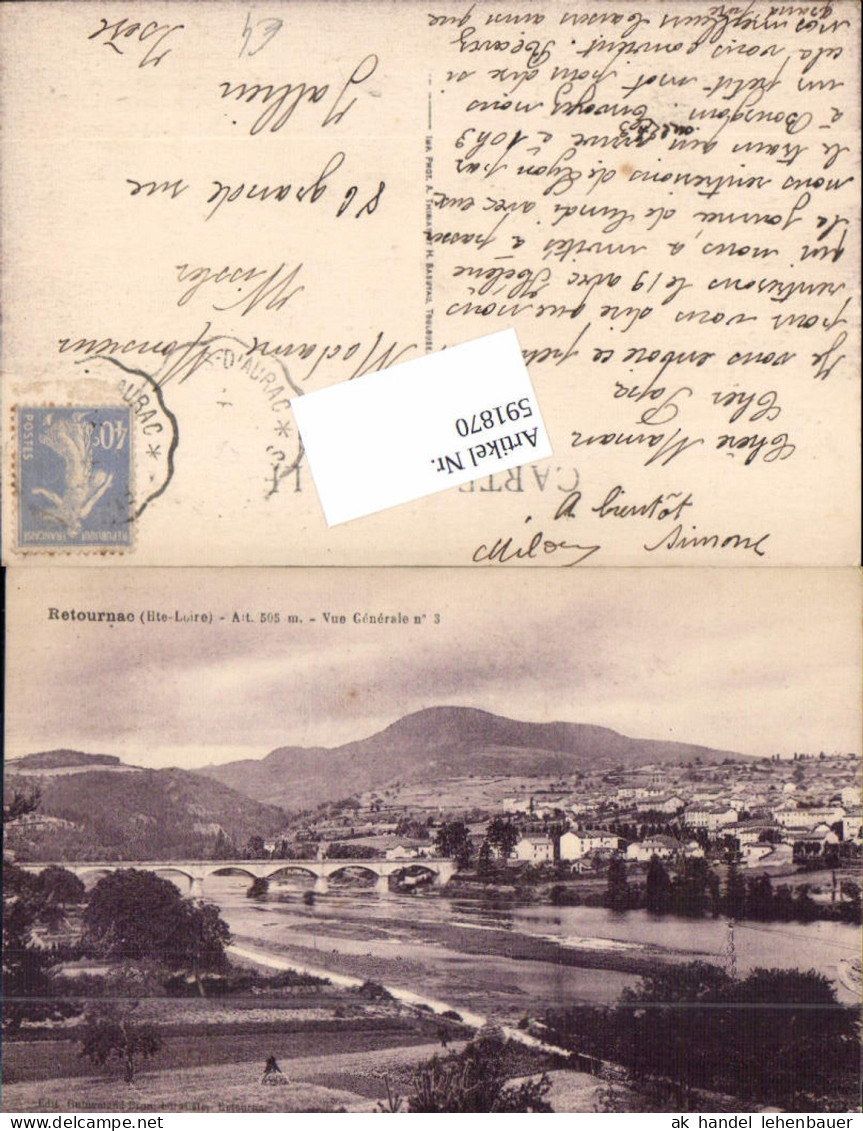 CARTE
Chère Maman
Cher Papa
Je vous envoie ce petit
pour vous dire que nous
rentrerons le 19 avec Hélène
qui nous a invités à passer
la journée de lundi avec eux
nous rentrerons de Lyon par
le train qui arrive à 10h9
à Bourgoin. Envoyez nous
un petit mot pour dire si
cela vous convient. Recevez
nos meilleurs baisers ainsi que
grand père
A bientôt
Simone
Madame Monsieur
Wissler
86 grande rue
Jallieu
Isère
IMP. PHOT. A. THIRIAT ET H. BASUYAU, TOULOUSE
D'AURAC *
AURAC *
REPUBLIQUE FRANÇAISE
40c
POSTES
Artikel Nr.
591870
Retournac (Hte-Loire) - Alt. 505 m. - Vue Générale n° 3
ak handel lehenbauer